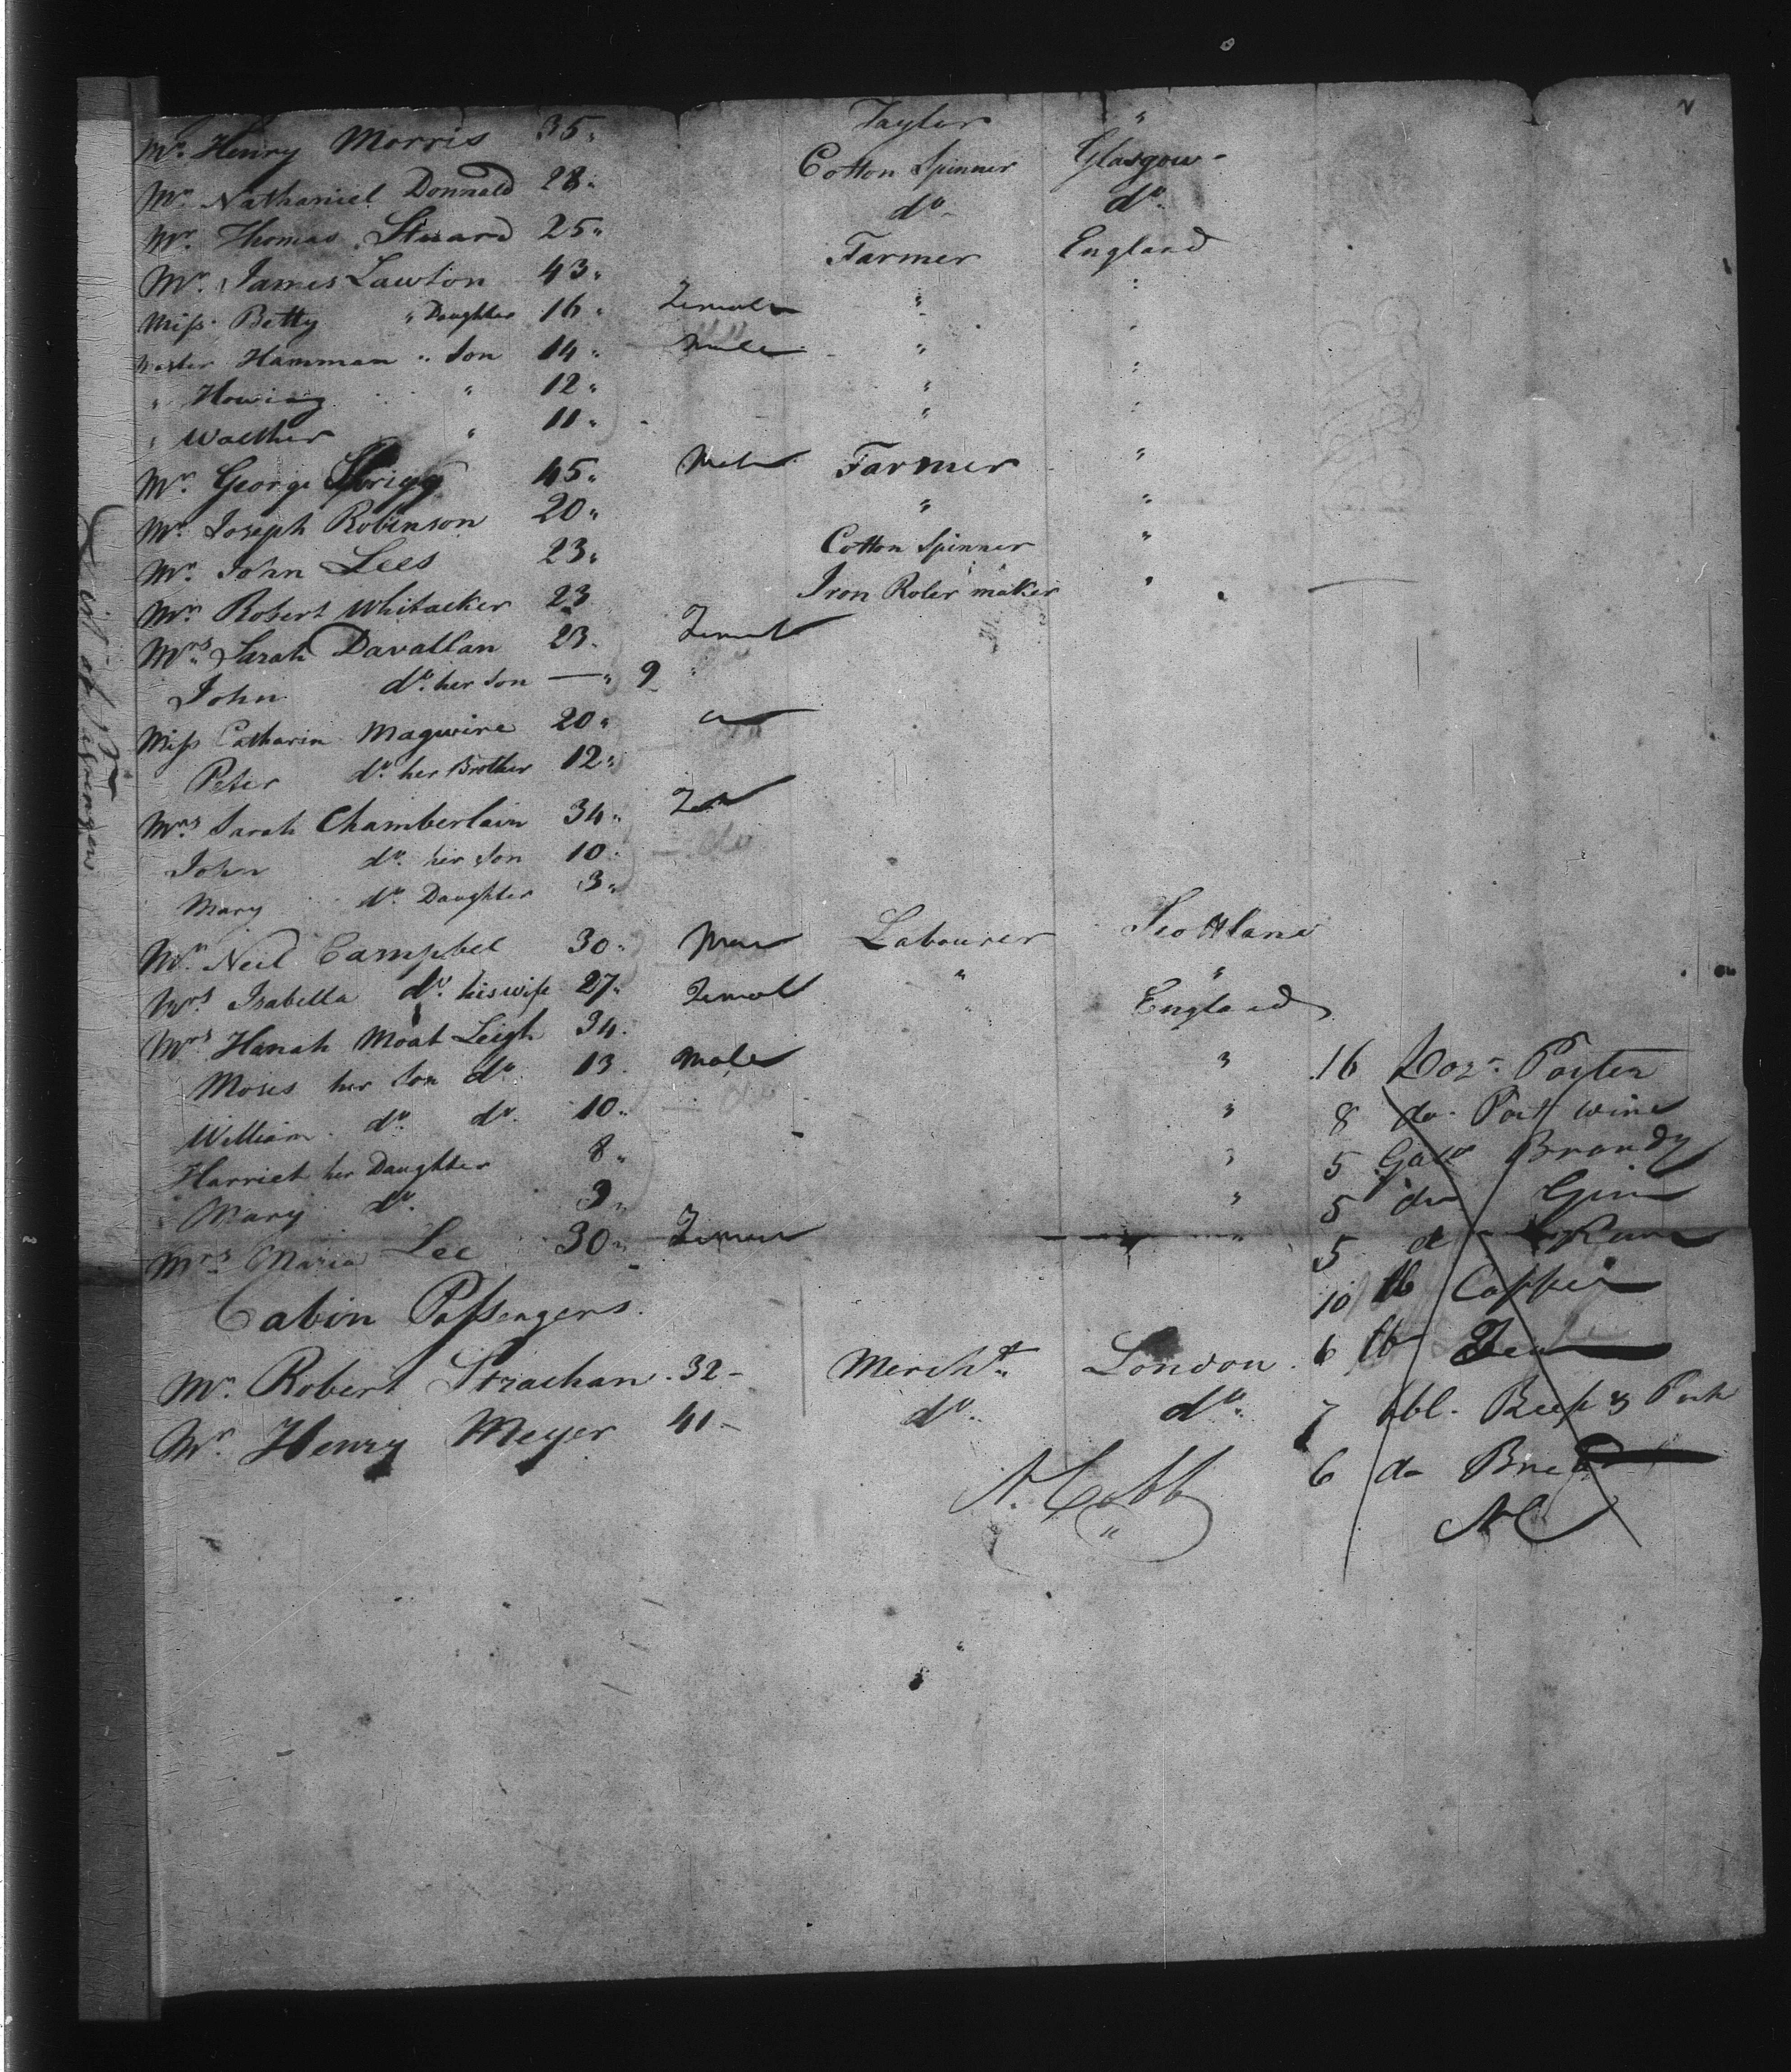 Mr. Henry Morris 35 " Taylor "
Mr. Nathaniel Donnald 28 " Cotton Spinner Glasgow
Mr. Thomas Stuard 25 " do do
Mr. James Lawton 43 " Farmer England
Miss Betty " Daughter 16 " Female " "
Master Hamman " Son 14 " Male " "
" " 12 " " "
" Walther " 11 " " "
Mr. George 45 " Male Farmer "
Mr. Joseph Robinson 20 " " "
Mr. John Lees 23 " Cotton Spinner "
Mr. Robert Whitacker 23 Iron Roler maker "
Mrs. Sarah Davallan 23 Female
John do. her son — " 9
Miss Catharin Maguire 20 "
Peter do. her Brother 12 "
Mrs. Sarah Chamberlain 34 "
John do. her son 10 do
Mary do. Daughter 3 "
Mr. Neil Campbel 30 " Male Labourer Scottland
Mrs. Isabella do. his wife 27 " Female " "
Mrs. Hanah Moat Leigh 34 " England
Moses her Son do. 13 Male " 16 Doz. Porter
William do. do. 10 " do " 8 do. Port wine
Harriet her Daughter 8 " " 5 Galls Brandy
Mary do. 3 " " 5 do Gin
Mrs. Maria Lee 30 " Female " 5 do Rum
10 lb Coffee
Cabin Passengers.
Mr. Robert Strachan 32 - Mercht. London 6 lb Tea
Mr. Henry Meyer 41 - do. do. 7 bbl. Beef & Pork
6 do Bread
N. Cobb
NC
List of Passengers